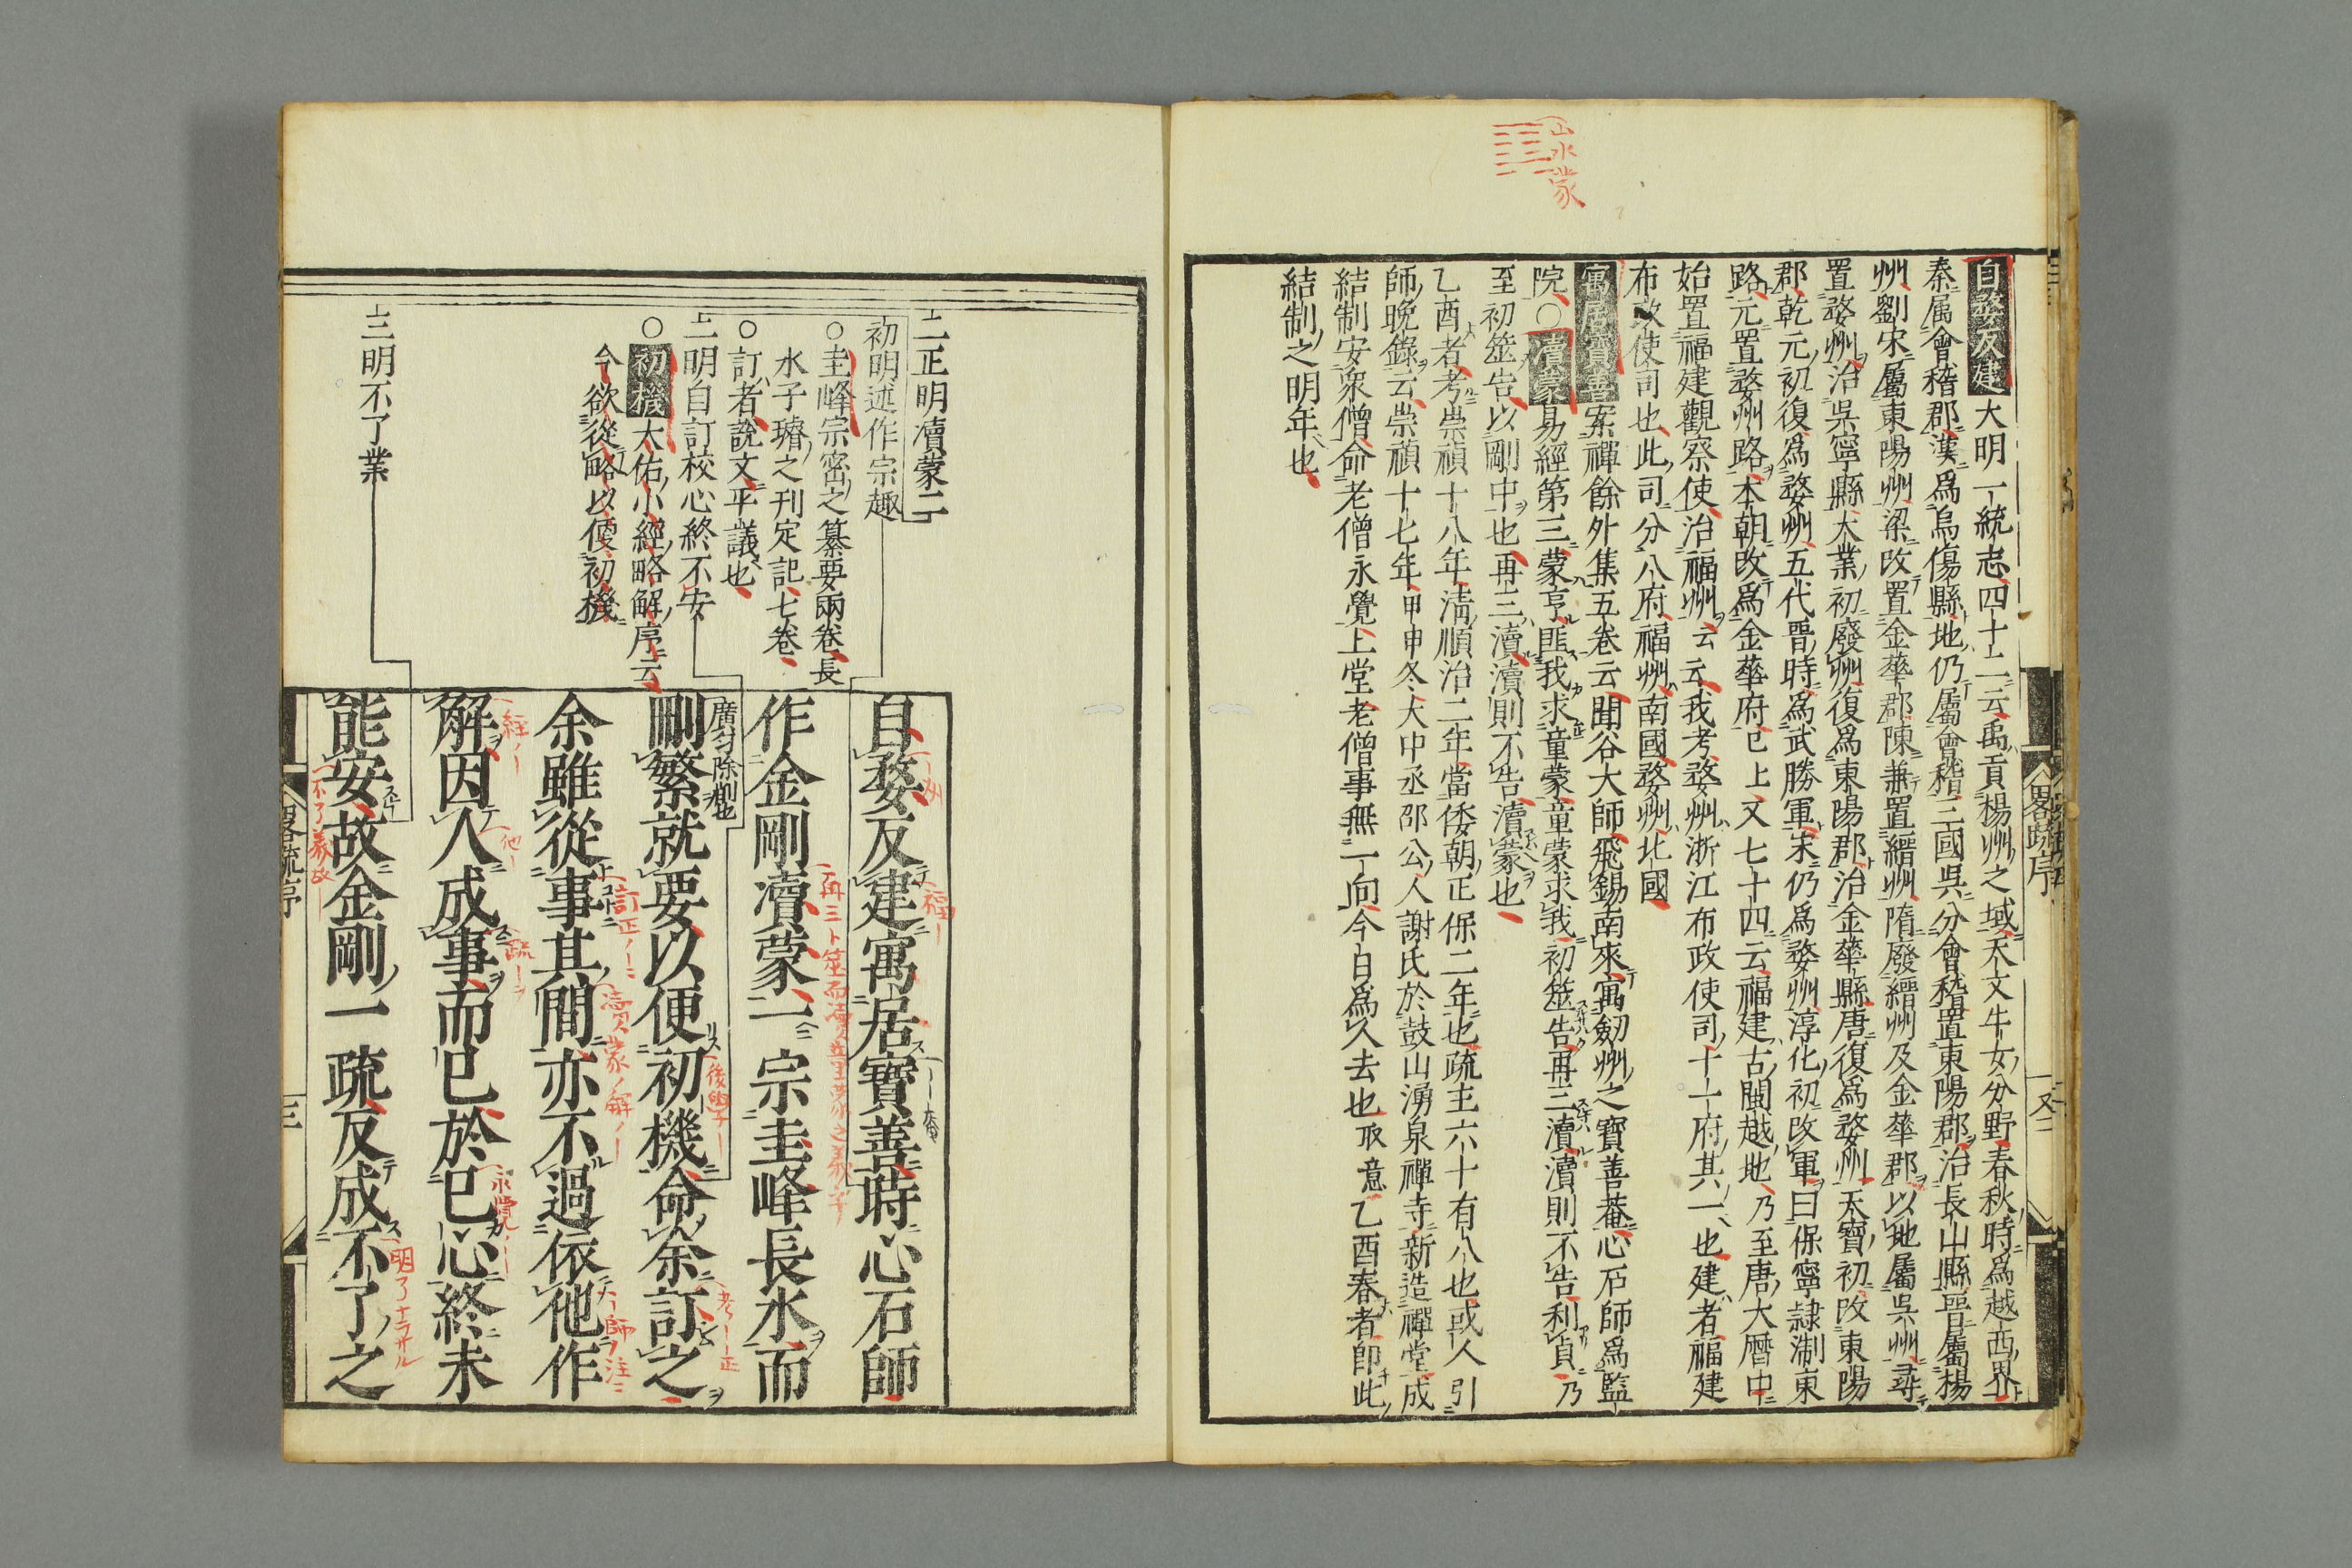 山水蒙
自婺及建大明一統志四十二云禹貢楊州之域天文牛女分野春秋時爲越西界
秦属會稽郡漢爲烏傷縣地仍屬會稽三國吳分會稽置東陽郡治長山縣晉屬楊
州劉宋屬東陽州梁改置金華郡陳兼置縉州隋廢縉州及金華郡以地屬吳州尋
置婺州治吳寧縣大業初廢州復爲東陽郡治金華縣唐復爲婺州天寶初改東陽
郡乾元初復爲婺州五代晋時爲武勝軍宋仍爲婺州淳化初改軍曰保寧隷淛東
路元置婺州路本朝改爲金華府已上又七十四云福建古閩越地乃至唐大曆中
始置福建觀察使治福州云云我考婺州浙江布政使司十一府其一也建者福建
布政使司也此司分八府福州南國婺州北國
寓居寶善案禪餘外集五卷云聞谷大師飛錫南來寓劒州之寶善菴心石師爲監
院○瀆蒙易經第三蒙亨匪我求童蒙童蒙求我初筮告再三瀆瀆則不告利貞乃
至初筮告以剛中也再三瀆瀆則不告瀆蒙也
乙酉者考崇禎十八年清順治二年當倭朝正保二年也疏主六十有八也或人引
師晚錄云崇禎十七年甲申冬大中丞邵公人謝氏於鼓山湧泉禪寺新造禪堂成
結制安衆僧命老僧永覺上堂老僧事無一向今日爲久去也取意乙酉春者即此
結制之明年也
畧疏序
二正明瀆蒙二
初明述作宗趣
○圭峰宗密之纂要兩卷長
水子璿之刊定記七卷
○訂者說文平議也
二明自訂校心終不安
○初機大佑小經略解序云
今欲從略以便初機
三明不了業
自婺及建寓居寶善時心石師
作金剛瀆蒙一宗圭峰長水而
廣匀除削也
刪繁就要以便初機命余訂之
余雖從事其間亦不過依他作
解因人成事而已於已心終未
能安故金剛一疏反成不了之
畧疏序
三